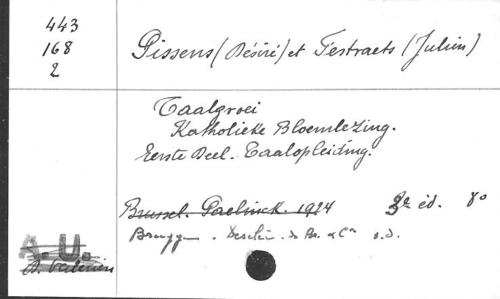 443
168
2
Pissens (Désiré) et Festraets (Julien)
Taalgroei
Katholieke Bloemlezing.
Eerste Deel. Taalopleiding.
Brussel. Paelinck. 1924 3e éd. 8o
Brugge. Desclée. de Br. & Cie s.d.
A.U.